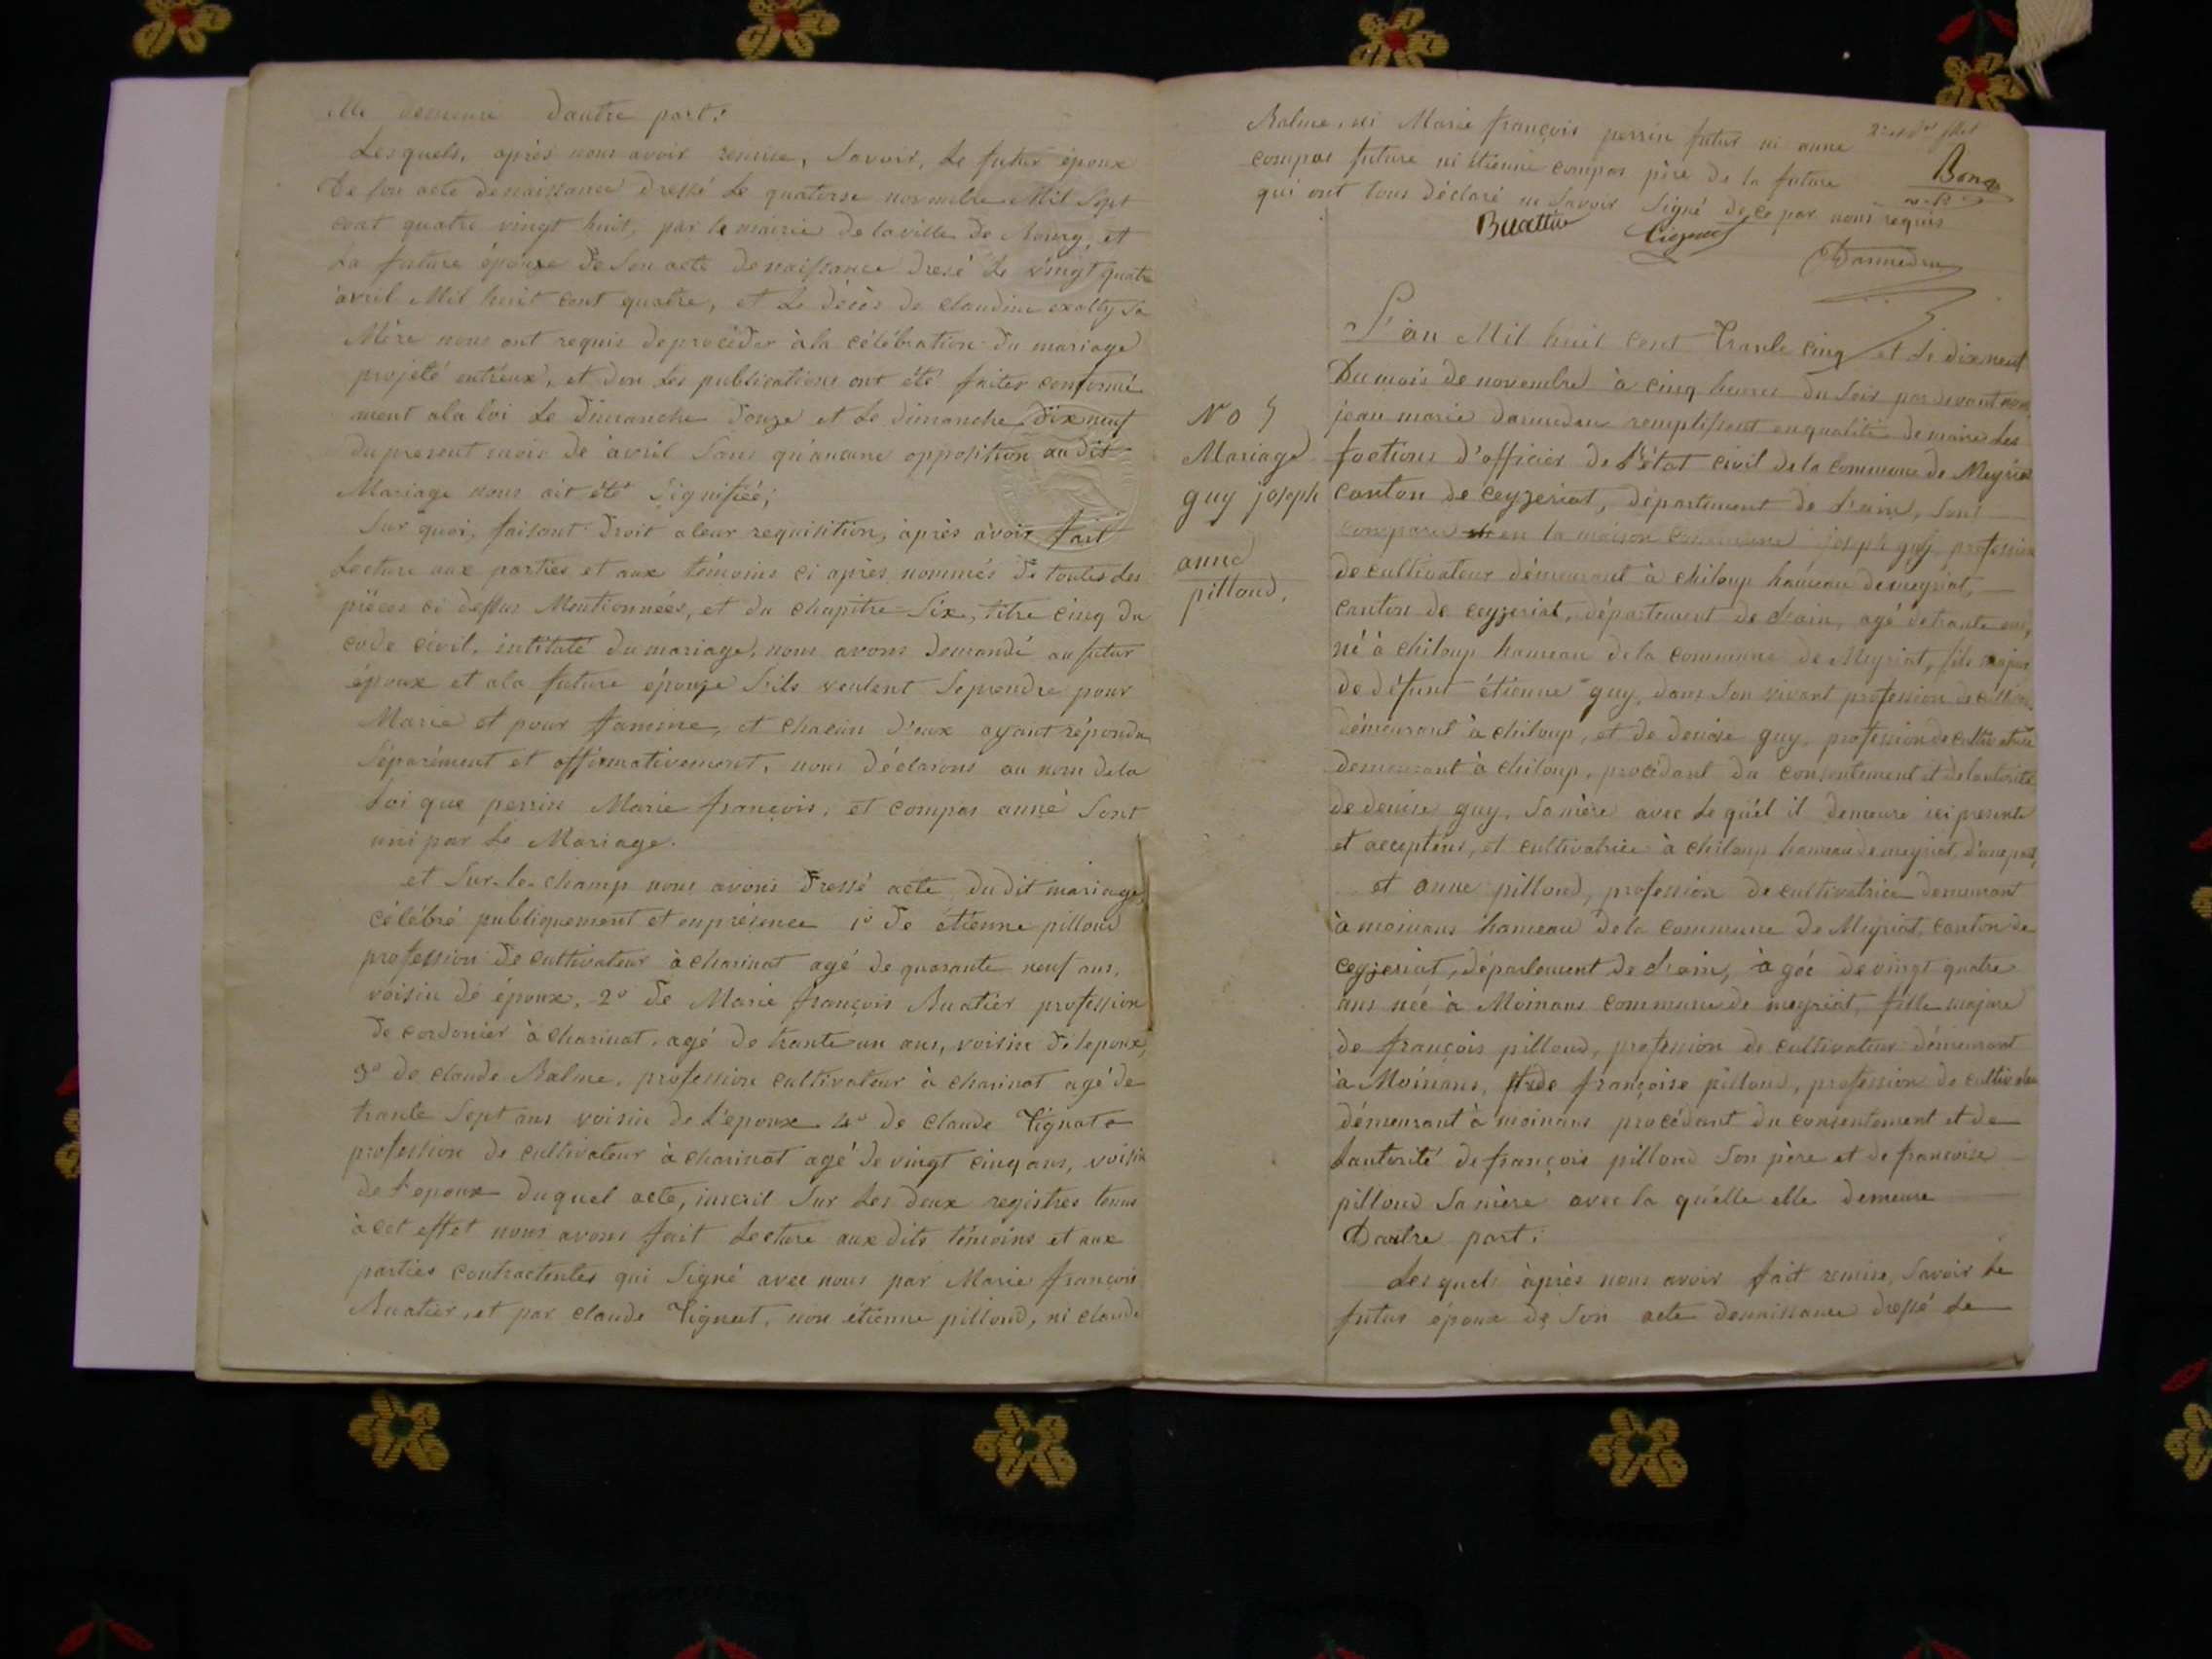 elle demeure dautre part.
Lesquels, après nous avoir remise, Savoir, Le futur époux
De son acte denaissance dressé Le quatorse novembre Mil Sept
cent quatre vingt huit, par le mairie de la ville de Bourg, et
La future épouse de Son acte denaissance dresé Le vingt quatre
avril Mil huit cent quatre, et Le décès de claudine Sa
Mère nous ont requis deprocéder à la célébration du mariage
projeté entréux, et don Les publications ont été faites conformé
ment ala loi Le Dimanche Douze et Le dimanche Dix neuf
du present mois de avril Sans qu'aucune opposition au dit
Mariage nous ait été Signifiéé;
Sur quoi, faisant Droit aleur requisition, après avoir fait
Lecture aux parties et aux témoins ci après nommés de toutes Les
pièces ci dessus Mentionnées, et du chapitre Six, titre cinq du
code civil, intitulé du mariage, nous avons demandé au futur
époux et ala future épouse S'ils veulent Seprendre pour
Marie et pour famme, et chacun d'eux ayant répondu
Séparément et affirmativement, nous déclarons au nom dela
Loi que perrin Marie françois, et compas anne Sont
uni par Le Mariage.
et Sur-le-champ nous avons Dressé acte du dit mariage,
célébré publiquement et enprésence 1° de étienne pilloud
profession de cultivateur à charinat agé de quarante neuf ans,
voisin de époux, 2° de Marie françois Buatier profession
de cordonier à charinat, agé de trante un ans, voisin de lepoux,
3° de claude Balme, profession cultivateur à charinat agé de
trante Sept ans voisin de L'epoux 4° de claude Tignat
profession de cultivateur à charinat agé de vingt cinq ans, voisin
de L'epoux duquel acte, inscrit Sur Les deux registres tenus
àcet effet nous avons fait Lecture aux dits témoins et aux
parties contractentes qui Signé avec nous par Marie françois
Buatier, et par claude Tignat, non étienne pilloud, ni claude
Balme, ni Marie françois perrin futur ni anne
compas future ni étienne compas père de la future
qui ont tous déclaré ne Savoir Signé de ce par nous requis
Bona
Buattier
Darmedru
N° 5
Mariage
guy joseph
anne
pilloud.
L'an Mil huit cent trante cinq et Le dix neuf
Du mois de novembre à cinq heures du Soir par devant nous
jean marie darmedru remplissent enqualité de maire Les
foctions d'officier de l'état civil de la commune de Meyriat
canton de ceyzeriat, département de L'ain, Sont
comparu en la maison commune joseph guy, profession
de cultivateur démeurant à chiloup hameau demeyriat,
canton de ceyzeriat, département de L'ain, agé detrante ans,
né à chiloup hameau de la commune de Meyriat, fils majeur
de défunt étienne guy, dans Son vivant profession de
démeurant à chiloup, et de denise guy, profession de
demeurant à chiloup, procédant du consentement et delautorité
de denise guy, Samère avec Le quèl il demeure ici presente
et acceptens, et cultivatrice à chiloup hameau de meyriat, d'une part,
et anne pilloud, profession de cultivatrice demeurant
à moinans hameau de la commune de Meyriat, canton de
ceyzeriat, département de L'ain, àgée de vingt quatre
ans née à Moinans commune de meyriat, fille majeure
de françois pilloud, profession de cultivateur démeurant
à Moinans, de françoise pilloud, profession de
démeurant à moinans procédant du consentement et de
Lautorité de françois pilloud Son père et de francoise
pilloud Samère avec la quélle elle demeure
Dautre part.
Lesquels après nous avoir fait remise, Savoir Le
futur époux de Son acte denaissance dressé Le